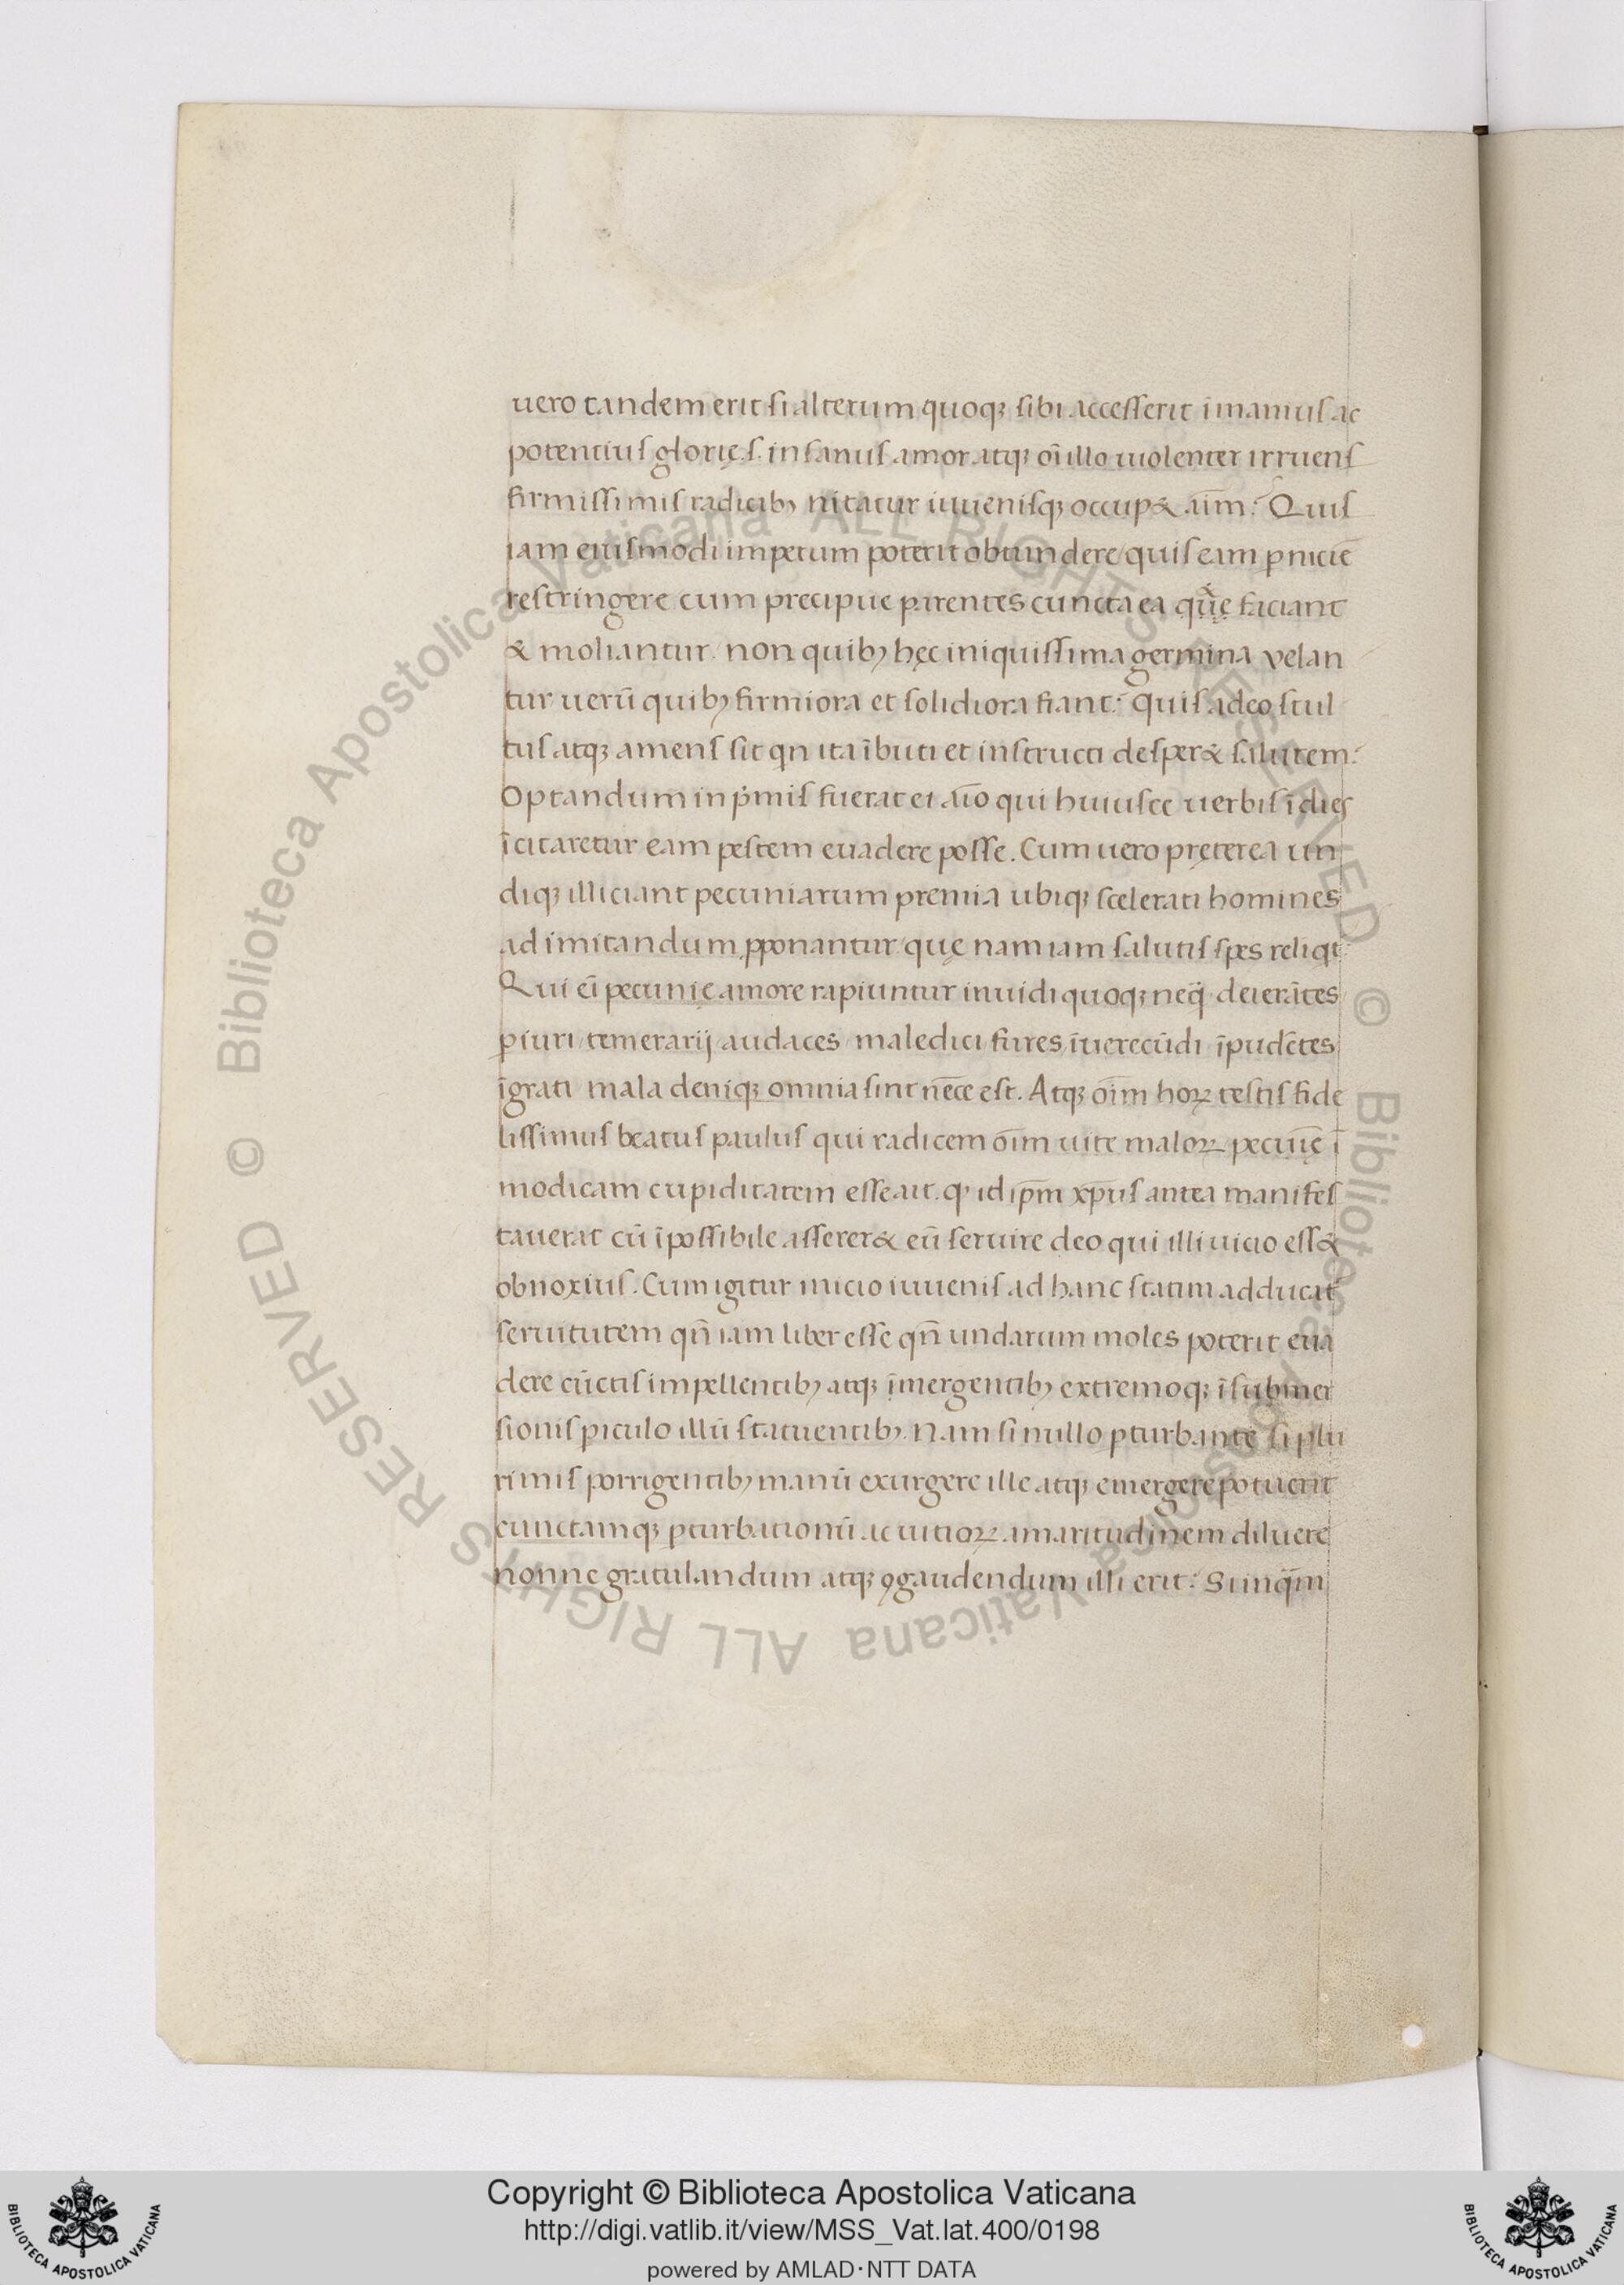 uero tandem erit si alterum quoqꝫ sibi accesserit īmanius ac
potentius glorię .s. insanus amor atqꝫ cū illo uiolenter irruens
firmissimis radicibꝫ nitatur iuuenisqꝫ occup& aīm? Quis
iam eiusmodi impetum poterit obtundere/ quis eam ꝑniciē
restringere cum precipue parentes cuncta ea quę faciant
& moliantur/ non quibꝫ hęc iniquissima germina velan
tur uerū quibꝫ firmiora et solidiora fiant? Quis adeo stul
tus atqꝫ amens sit qn ita ībuti et instructi desper& salutem?
Optandum in pͥmis fuerat ei aīo qui huiusce uerbis ī dies
īcitaretur eam pestem euadere posse. Cum uero pręterea un
diqꝫ illiciant pecuniarum premia ubiqꝫ scelerati homines
ad imitandum ꝓponantur/ quę nam iam salutis spes reliqͥ?
Qui eī pecunię amore rapiuntur inuidi quoqꝫ neq̃ deierātes
ꝑiuri/ temerarij/ audaces/ maledici/ fures/ īuerecūdi/ īpudētes
īgrati/ mala deniqꝫ omnia sint nēce est. Atqꝫ oīm hoꝝ testis fide
lissimus beatus paulus qui radicem oīm uite maloꝝ pecuīę ī
modicam cupiditatem esse ait. qͥ idip̄m xp̄us antea manifes
tauerat cū īpossibile asserer& eū seruire deo qui illi uicio ess&
obnoxius. Cum igitur inicio iuuenis ad hanc statim adducat᷑
seruitutem qn̄ iam liber esse qn̄ undarum moles poterit eua
dere cūctis impellentibꝫ atqꝫ īmergentibꝫ extremoqꝫ ī submer
sionis ꝑiculo illū statuentibꝫ. Nam si nullo ꝑturbante si plu
rimis porrigentibꝫ manū exurgere ille atqꝫ emergere potuerit
cunctamqꝫ ꝑturbationū ac uitioꝝ amaritudinem diluere
nonne gratulandum atqꝫ ꝯgaudendum illi erit? Si unq̄m
© Biblioteca Apostolica Vaticana ALL RIGHTS RESERVED © Biblioteca Apostolica Vaticana ALL RIGHTS RESERVED
BIBLIOTECA APOSTOLICA VATICANA
Copyright © Biblioteca Apostolica Vaticana
http://digi.vatlib.it/view/MSS_Vat.lat.400/0198
powered by AMLAD·NTT DATA
BIBLIOTECA APOSTOLICA VATICANA